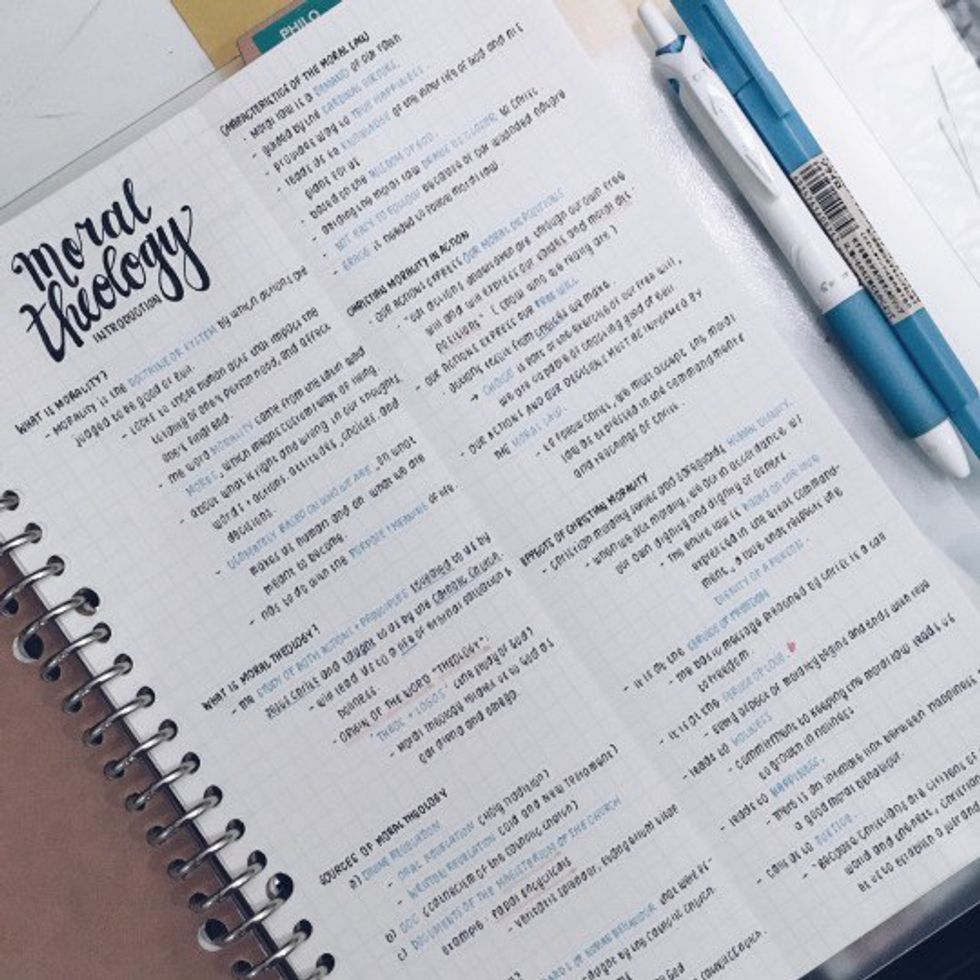 PHILO
Moral
theology
INTRODUCTION
WHAT IS MORALITY?
- MORALITY IS THE DOCTRINE OR SYSTEM by which actions are
judged to be good or evil.
- looks to those human actions that impact the
totality of one's personhood, and affect
one's final end.
- The word MORALITY came from the latin word
MORES, which means custom/ways of living
- about what is right and wrong in our thoughts,
words + actions, attitudes, choices, and
decisions.
- ULTIMATELY BASED ON WHO WE ARE, on what
makes us human and on what we are
meant to become.
- has to do with the PURPOSE + MEANING of life.
WHAT IS MORAL THEOLOGY?
- the STUDY OF BOTH ACTIONS + PRINCIPLES revealed to us by
JESUS CHRIST and taught to us by the CATHOLIC CHURCH.
- will lead us to a life of eternal salvation &
happiness
- ORIGIN OF THE WORD "THEOLOGY":
"THEOS" + "LOGOS" (the study of God)
- Moral theology points us to God as
our alpha and omega.
SOURCES OF MORAL THEOLOGY
a) DIVINE REVELATION
- ORAL REVELATION (Holy Tradition)
- WRITTEN REVELATION (Old and New Testament)
b) CCC (Catechism of the Catholic Church)
c) DOCUMENTS OF THE MAGISTERIUM OF THE CHURCH
example: papal encyclicals
- Veritatis Splendor, Evangelium Vitae
OF HUMAN BEHAVIOUR that were
taught by the Catholic Church.
CHARACTERISTICS OF THE MORAL LAW
- Moral law is a DEMAND of our faith
- guided by the CARDINAL VIRTUES.
- prepare way to TRUE HAPPINESS.
- leads us to KNOWLEDGE of the inner life of God and His
plans for us
- based on the WISDOM OF GOD.
- abiding the moral law DRAWS US CLOSER to Christ
- NOT EASY TO FOLLOW because of our wounded nature
- GRACE is needed to follow moral law.
CHRISTIAN MORALITY IN ACTION
- OUR ACTIONS EXPRESS OUR MORAL DISPOSITIONS
- "our actions answered are through our own free
will and will express our values and moral dis-
positions" (show who we really are)
- OUR ACTIONS EXPRESS OUR FREE WILL
actions result from choices we make.
→ CHOICE is part of the exercise of our free will,
we are capable of choosing good or evil.
- OUR ACTIONS AND OUR DECISIONS MUST BE INFORMED BY
THE MORAL LAW.
- to follow Christ, we must embrace the moral
law as expressed in the commandments
and teachings of Christ.
EFFECTS OF CHRISTIAN MORALITY
- Christian morality and safeguards HUMAN DIGNITY.
- when we act morally, we act in accordance w/
our own dignity and dignity of others
- the entire law is based on one law
expressed in the great command-
ment, a love that respects the
DIGNITY OF A PERSON.
- it is at the SERVICE OF FREEDOM
- the basic message preached by Christ is a call
to freedom.
- it is at the SERVICE OF LOVE
- every aspect of morality begins and ends with love
- leads to HOLINESS
- commitment to keeping the moral law leads us
to growth in holiness
- leads to HAPPINESS.
- there is an intimate link between happiness
& good moral behaviour.
- call us to JUSTICE.
- because Christians are citizens of
world and
us to establish a just and